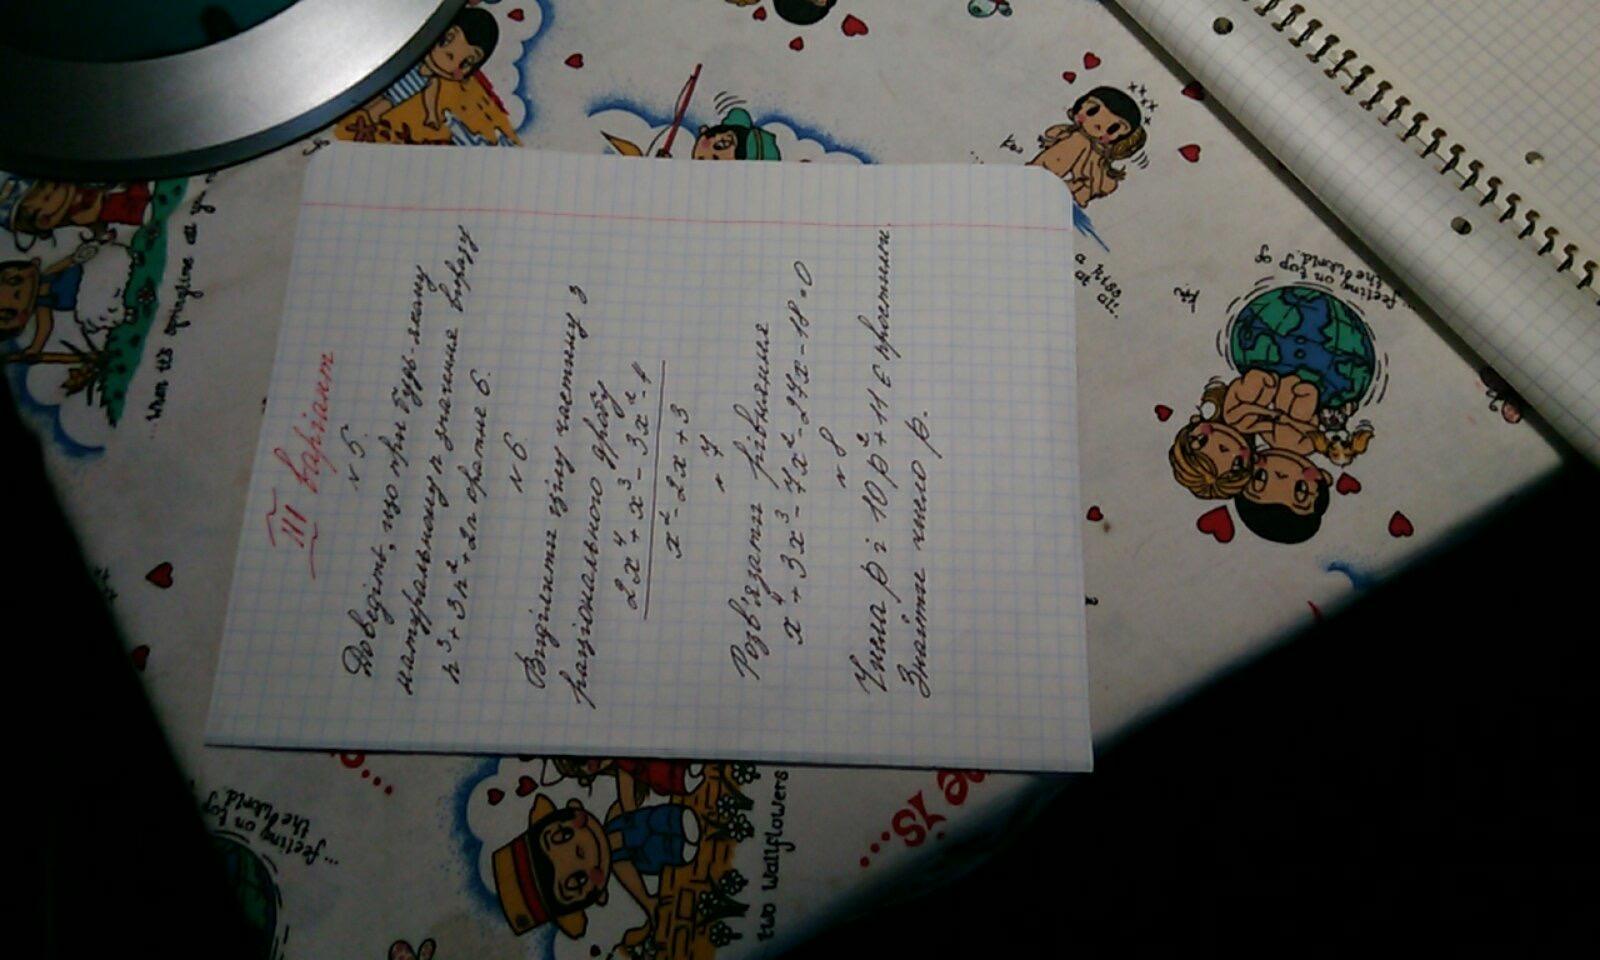 III варіант
N 5.
Доведіть, що при будь-якому
натуральному n значення виразу
n³+3n²+2n кратне 6.
N 6.
Виділити цілу частину з
раціонального дробу
2x⁴+x³-3x²-1
x²-2x+3
N 7
Розв'язати рівняння
x⁴+3x³-7x²-27x-18=0
N 8
Числа p і 10p²+11 є простими.
Знайти число p.
...when it's springtime all ye
a kiss
at all.
...feeling on top of
the world.
...feeling on top of
the world.
two wallflowers
is...